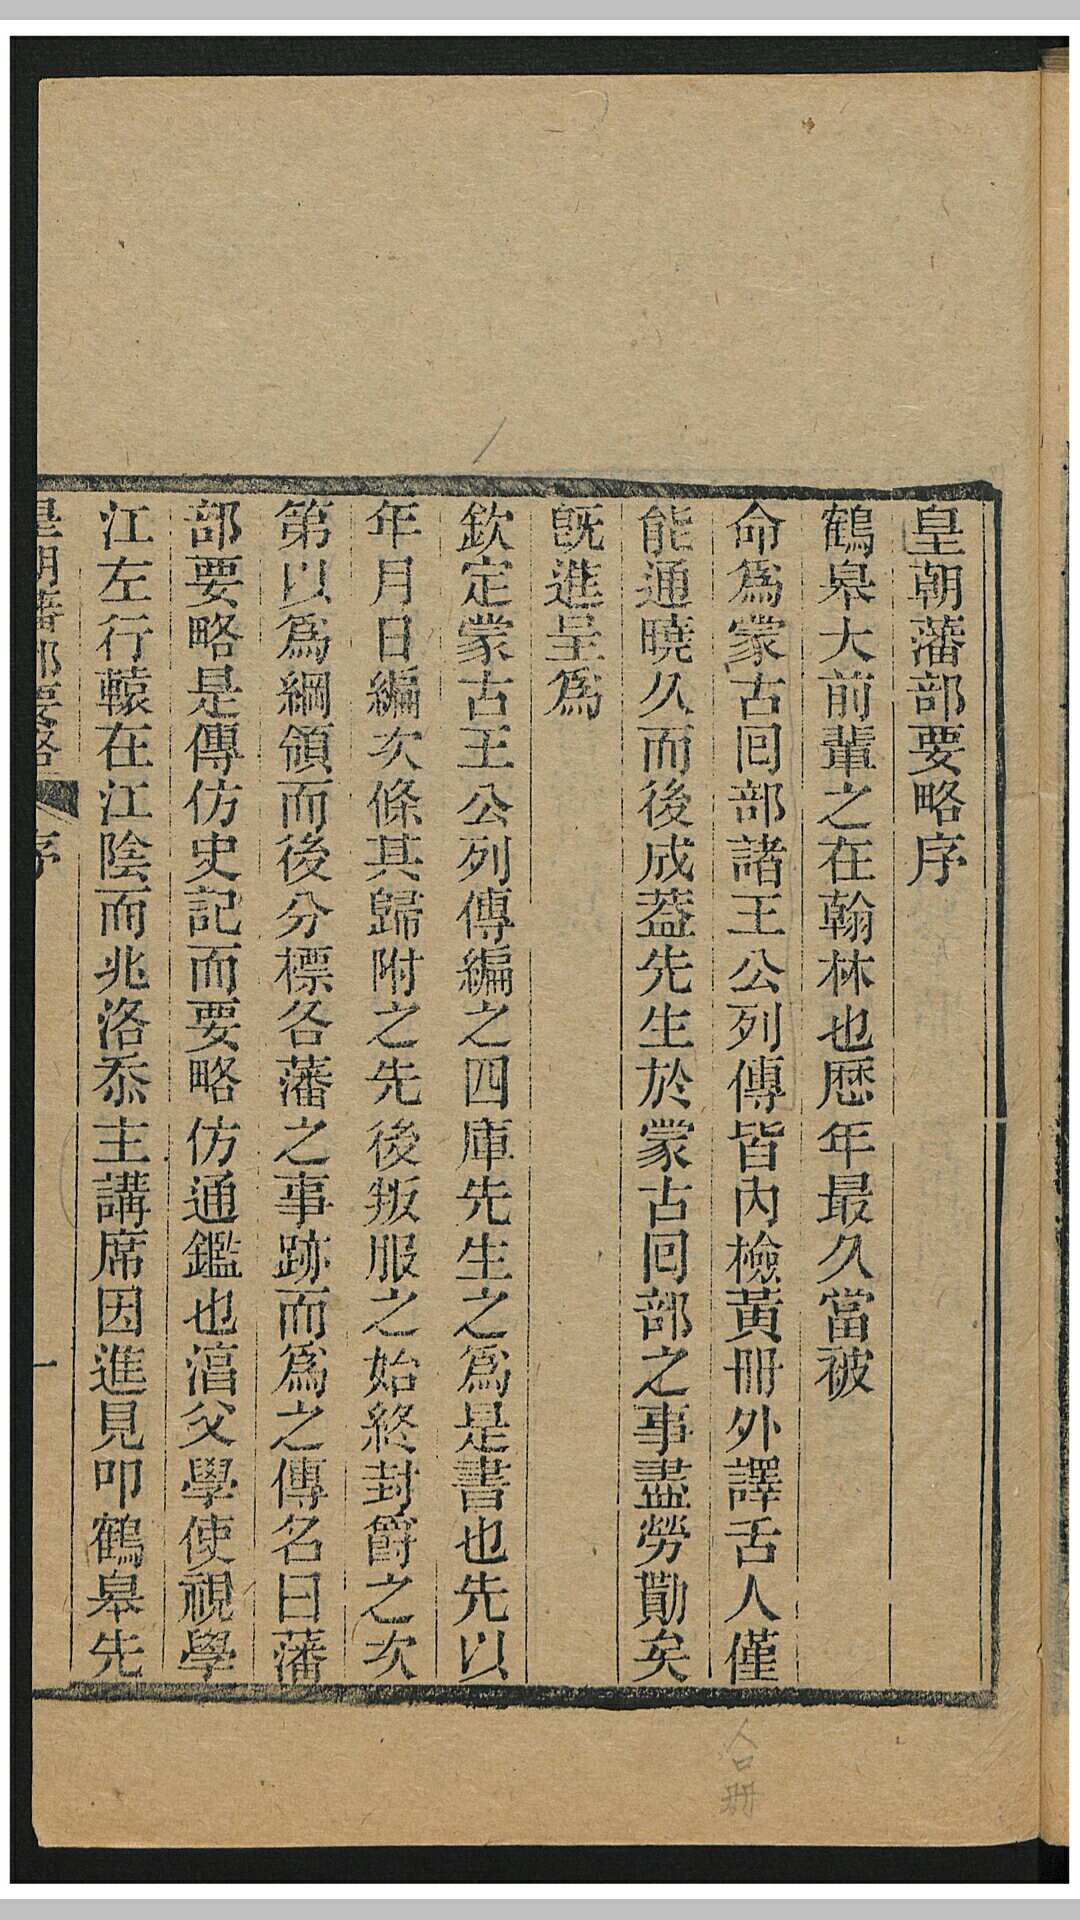 皇朝藩部要略序
鶴皋大前輩之在翰林也歷年最久當被
命爲蒙古回部諸王公列傳皆內檢黃冊外譯舌人僅
能通曉久而後成葢先生於蒙古回部之事盡勞勩矣
旣進呈爲
欽定蒙古王公列傳編之四庫先生之爲是書也先以
年月日編次條其歸附之先後叛服之始終封爵之次
第以爲綱領而後分標各藩之事跡而爲之傳名曰藩
部要略是傳仿史記而要略仿通鑑也淯父學使視學
江左行轅在江陰而兆洛忝主講席因進見叩鶴皋先
皇朝藩部要略 序 一
合冊